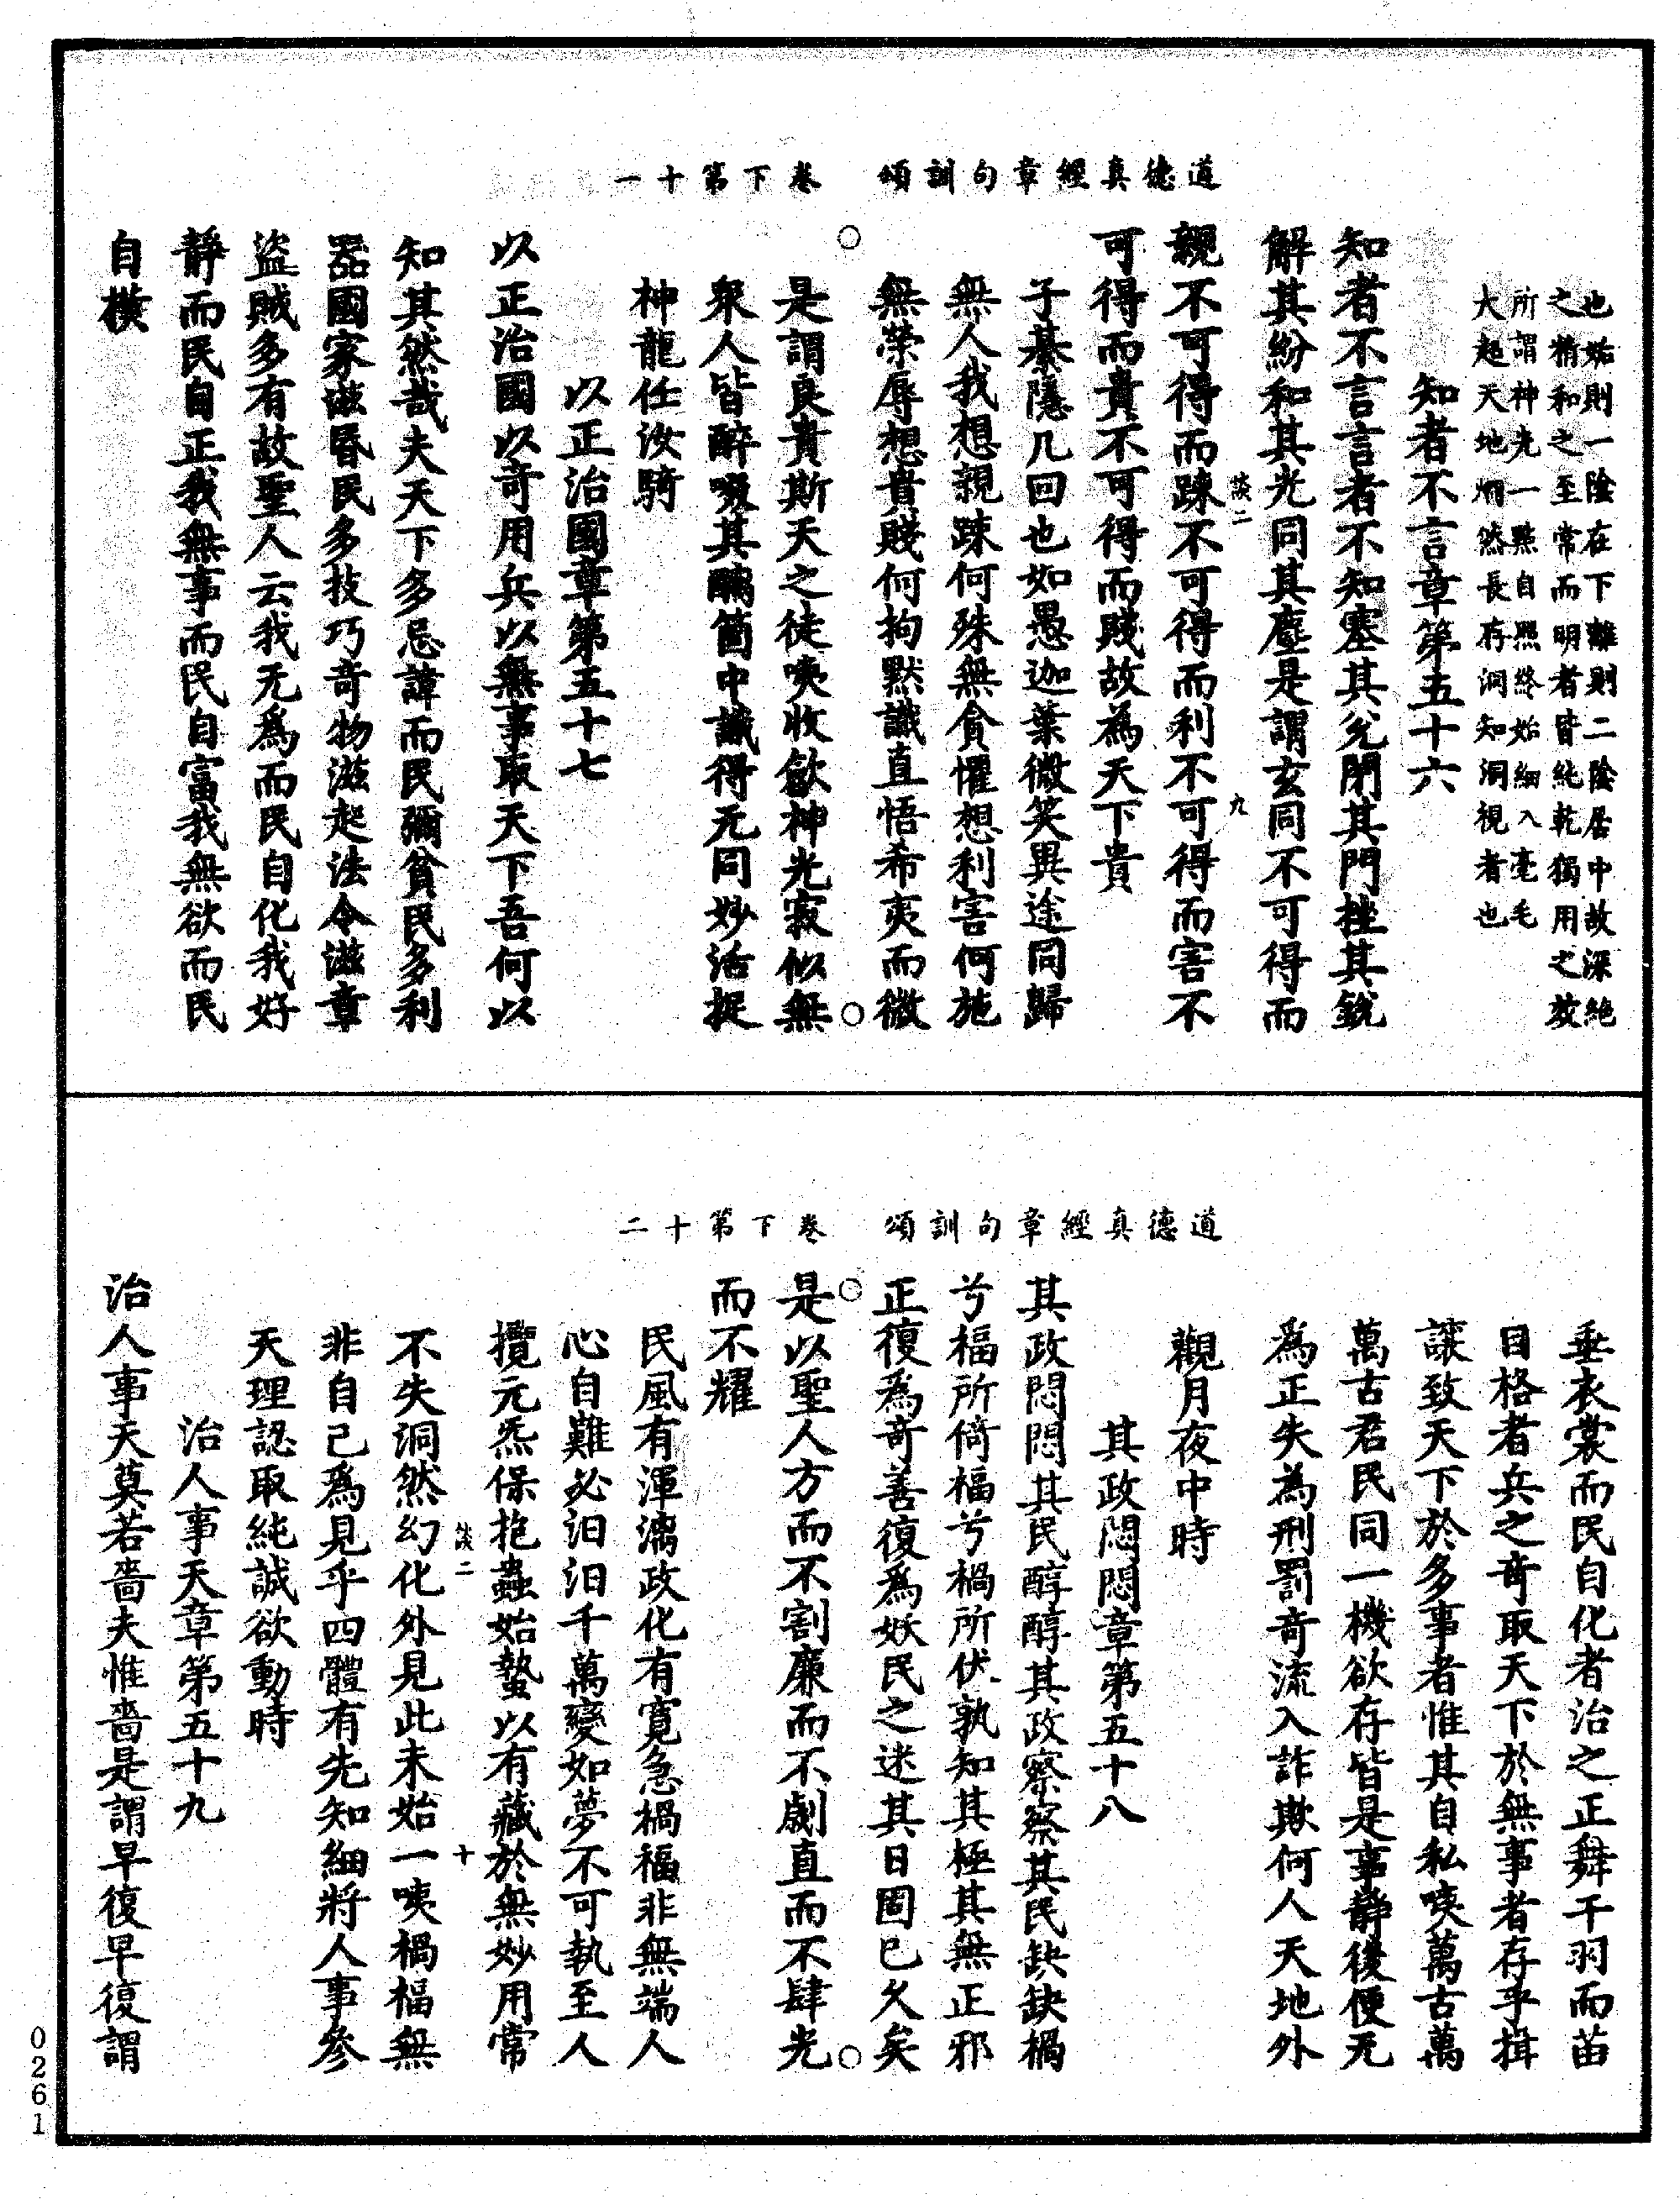 道德真經章句訓頌　卷下第十一
也姤則一陰在下離則二陰居中故深絶
之精和之至常而明者皆純乾獨用之效
所謂神光一點自照終始細入毫毛
大起天地炯然長存洞知洞視者也
知者不言章第五十六
知者不言言者不知塞其兊閉其門挫其銳
解其紛和其光同其塵是謂玄同不可得而
親不可得而踈不可得而利不可得而害不
談二　九
可得而貴不可得而賤故為天下貴
子綦隱几回也如愚迦葉微笑異途同歸
無人我想親踈何殊無貪懼想利害何施
無榮辱想貴賤何拘默識直悟希夷而微
是謂良貴斯天之徒咦收歛神光寂似無
衆人皆醉啜其醨箇中識得元同妙活捉
神龍任汝騎
以正治國章第五十七
以正治國以奇用兵以無事取天下吾何以
知其然哉夫天下多忌諱而民彌貧民多利
器國家滋昏民多技巧奇物滋起法令滋章
盜賊多有故聖人云我无爲而民自化我好
靜而民自正我無事而民自富我無欲而民
自樸
道德真經章句訓頌　卷下第十二
垂衣裳而民自化者治之正舞干羽而苗
自格者兵之奇取天下於無事者存乎揖
讓致天下於多事者惟其自私咦萬古萬
萬古君民同一機欲存皆是事靜後便无
為正失為刑罰奇流入詐欺何人天地外
觀月夜中時
其政悶悶章第五十八
其政悶悶其民醇醇其政察察其民缺缺禍
兮福所倚福兮禍所伏孰知其極其無正邪
正復爲奇善復爲妖民之迷其日固已久矣
是以聖人方而不割廉而不劌直而不肆光
而不耀
民風有渾漓政化有寬急禍福非無端人
心自難必汩汩千萬變如夢不可執至人
攬元炁保抱蟲始蟄以有藏於無妙用常
談二　十
不失洞然幻化外見此未始一咦禍福無
非自己爲見乎四體有先知細將人事參
天理認取純誠欲動時
治人事天章第五十九
治人事天莫若嗇夫惟嗇是謂早復早復謂
0261